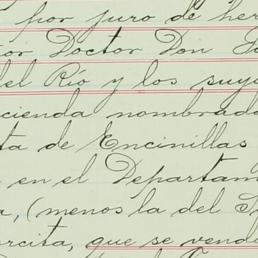 por juro de her
or Doctor Don
del Rio y los suy
cienda nombrada
ta de Encinillas
en el Departam
a, (menos la del
orcita, que se vend